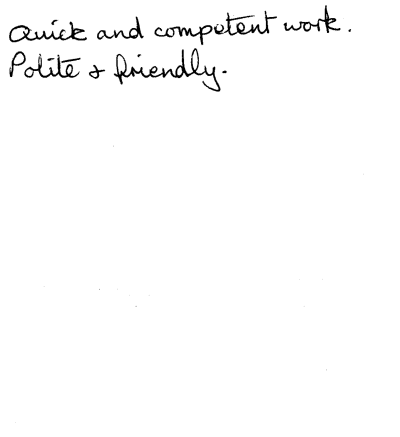 Quick and competent work.
Polite & friendly.